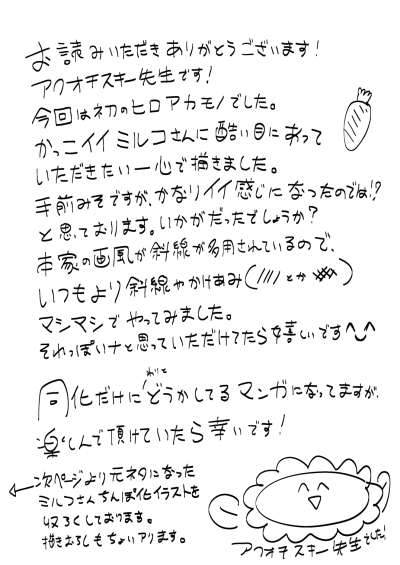 お読みいただきありがとうございます！
アクオチスキー先生です！
今回は初のヒロアカモノでした。
かっこイイミルコさんに酷い目にあって
いただきたい一心で描きました。
手前みそですが、かなりイイ感じになったのでは!?
と思っております。いかがだったでしょうか？
本家の画風が斜線が多用されているので、
いつもより斜線やかけあみ(//// とか )
マシマシでやってみました。
それっぽいナと思っていただけてたら嬉しいです^^
同化だけにわりとどうかしてるマンガになってますが、
楽しんで頂けていたら幸いです！
←次ページより元ネタになった
ミルコさんちんぽ化イラストを
収ろくしております。
描きおろしもちょいアリます。
アクオチスキー先生でした！